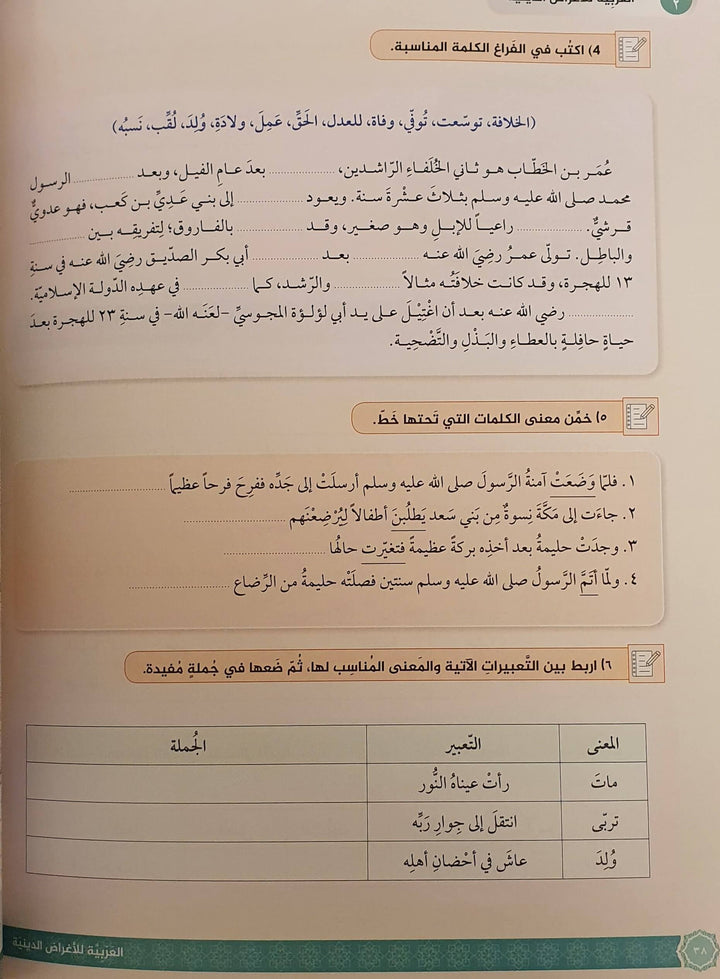 ٢
العَرَبِيَّة للأغراض الدينية
4) اكتُب في الفَراغ الكلمة المناسبة.
(الخلافة، توسّعت، تُوفّي، وفاة، للعدل، الحَقِّ، عَمِلَ، ولادَةِ، وُلِدَ، لُقِّب، نَسبُه)
عُمَر بن الخَطَّاب هو ثاني الخُلَفاءِ الرّاشدين، .................. بعدَ عامِ الفيل، وبعد .................. الرسول
محمد صلى الله عليه وسلم بثلاثَ عشْرةَ سنة. ويعود .................. إلى بني عَدِيِّ بن كَعب، فهو عدويٌّ
قرشيٌّ. .................. راعياً للإبلِ وهو صغير، وقد .................. بالفاروق؛ لِتفريقِه بين ..................
والباطِل. تولّى عمرُ رضِيَ الله عنه .................. بعد .................. أبي بكر الصدّيق رضِيَ الله عنه في سنةِ
١٣ للهجرة، وقد كانت خلافَتُه مثالاً .................. والرّشد، كما .................. في عهدِه الدّولة الإسلاميّة.
.................. رضي الله عنه بعد أن اغْتِيْلَ على يد أبي لؤلؤة المجوسيِّ -لعَنَه الله- في سنةِ ٢٣ للهجرة بعدَ
حياةٍ حافِلةٍ بالعطاءِ والبَذْلِ والتَّضْحِية.
٥) خمِّن معنى الكلمات التي تَحتها خَطّ.
١. فلمّا وَضَعَتْ آمنةُ الرَّسولَ صلى الله عليه وسلم أرسلَتْ إلى جَدِّه ففرِحَ فرحاً عظيماً ..................
٢. جاءَت إلى مَكَّةَ نِسوةٌ مِن بَني سَعد يَطلُبنَ أطفالاً لِيُرْضِعْنَهم ..................
٣. وجدَتْ حليمةُ بعد أخذِه بركةً عظيمةً فتغيّرت حالهُا ..................
٤. ولمّا أتَمَّ الرَّسولُ صلى الله عليه وسلم سنتين فصلَتْه حليمةُ من الرِّضاع ..................
٦) اربط بين التَّعبيراتِ الآتية والمَعنى المُناسِب لها، ثُمّ ضَعها في جُملةٍ مُفيدة.
المعنى التّعبير الجُملة
ماتَ رأتْ عيناهُ النُّور
تربّى انتقلَ إلى جِوارِ رَبِّه
وُلِدَ عاشَ في أحْضانِ أهلِه
٣٨
العَرَبِيَّة للأغراض الدينية